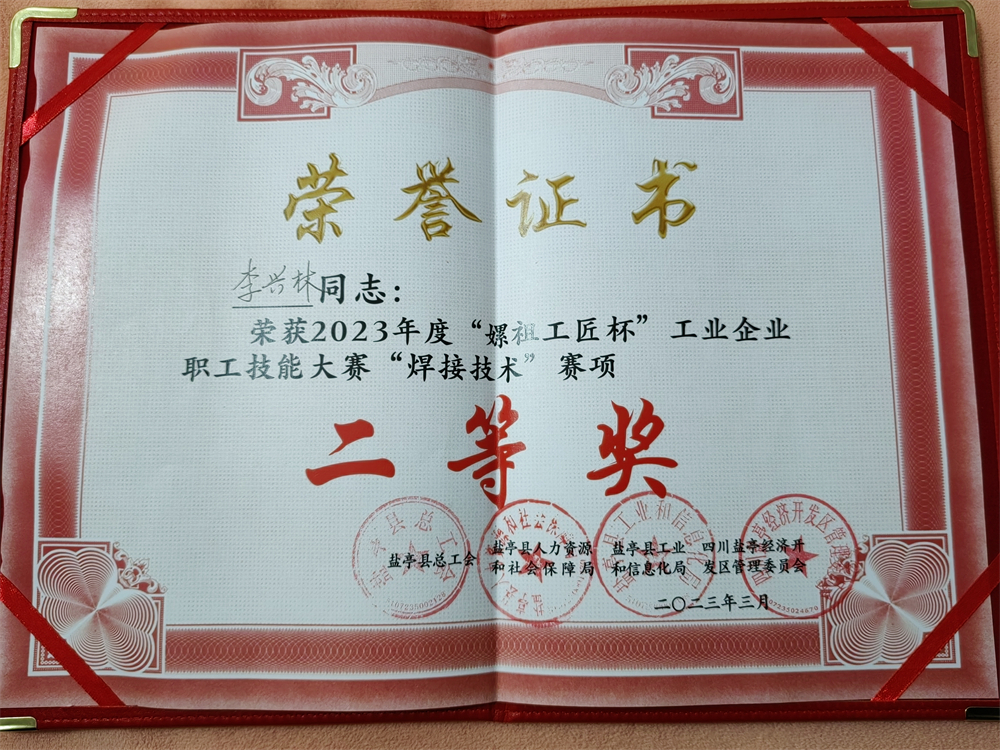 荣誉证书
李兴林同志：
荣获2023年度“嫘祖工匠杯”工业企业
职工技能大赛“焊接技术”赛项
二等奖
盐亭县总工会
盐亭县人力资源
和社会保障局
盐亭县工业
和信息化局
四川盐亭经济开
发区管理委员会
二〇二三年三月